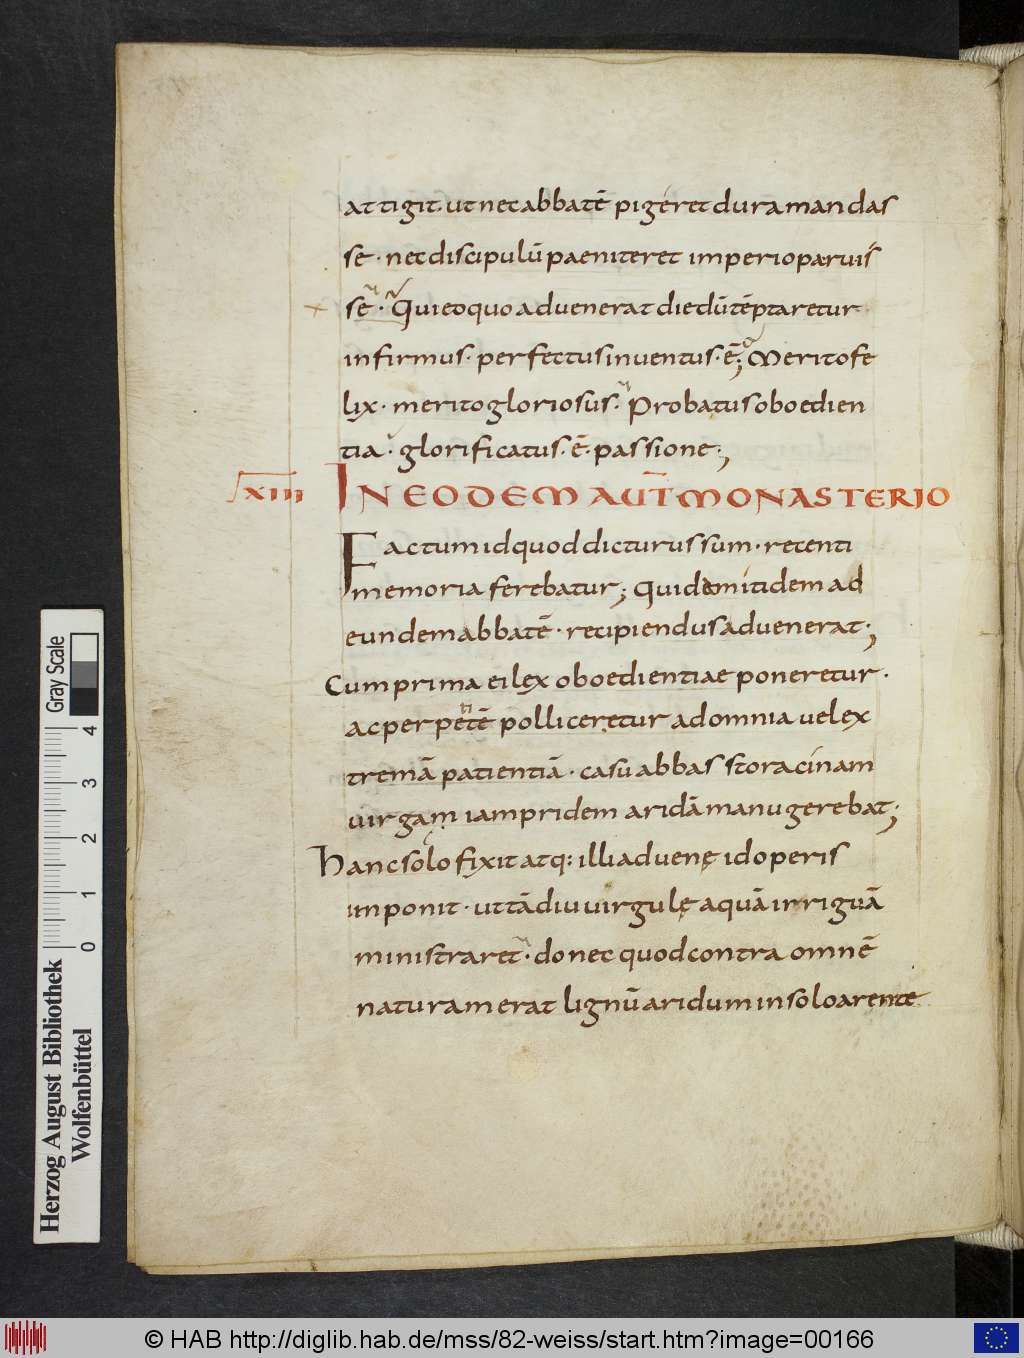 attigit. ut nec abbatē pigeret dura mandas
se · nec discipulū paeniteret imperio paruis
sē · Qui eo quo aduenerat die dū tēptaretur
infirmus · perfectus inuentus · ē; Merito fe
lix · merito gloriosus · Probatus oboedien
tia · glorificatus · ē · passione ;
XIII IN EODEM AUT̄ MONASTERIO
Factum id quod dicturus sum · recenti
memoria ferebatur; Quidam itidem ad
eundem abbatē · recipiendus aduenerat ;
Cum prima ei lex oboedientiae poneretur ·
ac perpetē polliceretur ad omnia uel ex
tremā patientiā · casu abbas storacinam
uirgam iam pridem aridā manu gerebat ;
Hanc solo fixit atq: illi aduenę id operis
imponit · ut tādiu uirgulę aquā irriguā
ministraret · donec quod contra omnē
naturam erat lignū aridum in solo arente
Gray Scale
0 1 2 3 4
Herzog August Bibliothek
Wolfenbüttel
© HAB http://diglib.hab.de/mss/82-weiss/start.htm?image=00166